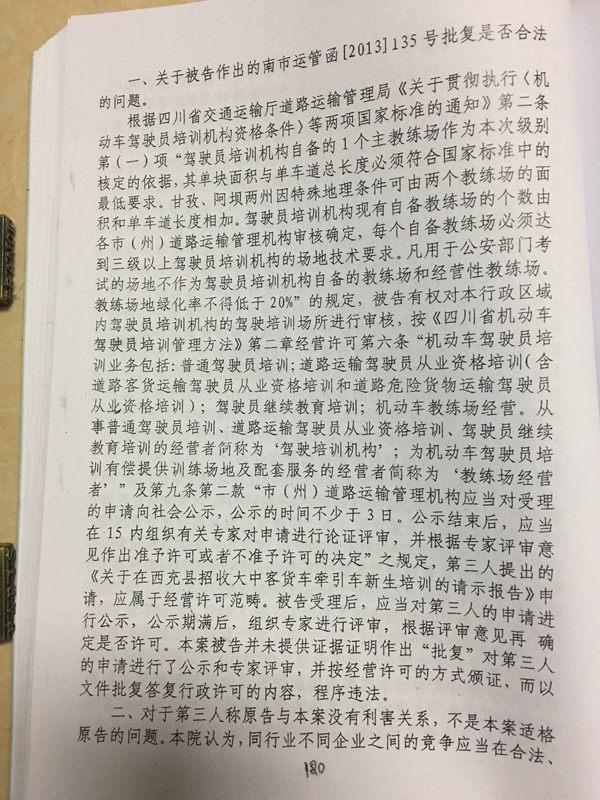 一、关于被告作出的南市运管函[2013]135号批复是否合法
的问题。
根据四川省交通运输厅道路运输管理局《关于贯彻执行〈机
动车驾驶员培训机构资格条件〉等两项国家标准的通知》第二条
第（一）项“驾驶员培训机构自备的1个主教练场作为本次级别
核定的依据，其单块面积与单车道总长度必须符合国家标准中的
最低要求。甘孜、阿坝两州因特殊地理条件可由两个教练场的面
积和单车道长度相加。驾驶员培训机构现有自备教练场的个数由
各市（州）道路运输管理机构审核确定，每个自备教练场必须达
到三级以上驾驶员培训机构的场地技术要求。凡用于公安部门考
试的场地不作为驾驶员培训机构自备的教练场和经营性教练场。
教练场地绿化率不得低于20%”的规定，被告有权对本行政区域
内驾驶员培训机构的驾驶培训场所进行审核，按《四川省机动车
驾驶员培训管理方法》第二章经营许可第六条“机动车驾驶员培
训业务包括：普通驾驶员培训；道路运输驾驶员从业资格培训（含
道路客货运输驾驶员从业资格培训和道路危险货物运输驾驶员
从业资格培训）；驾驶员继续教育培训；机动车教练场经营。从
事普通驾驶员培训、道路运输驾驶员从业资格培训、驾驶员继续
教育培训的经营者简称为‘驾驶培训机构’；为机动车驾驶员培
训有偿提供训练场地及配套服务的经营者简称为‘教练场经营
者’”及第九条第二款“市（州）道路运输管理机构应当对受理
的申请向社会公示，公示的时间不少于3日。公示结束后，应当
在15内组织有关专家对申请进行论证评审，并根据专家评审意
见作出准予许可或者不准予许可的决定”之规定，第三人提出的
《关于在西充县招收大中客货车牵引车新生培训的请示报告》申
请，应属于经营许可范畴。被告受理后，应当对第三人的申请进
行公示，公示期满后，组织专家进行评审，根据评审意见再 确
定是否许可。本案被告并未提供证据证明作出“批复”对第三人
的申请进行了公示和专家评审，并按经营许可的方式颁证，而以
文件批复答复行政许可的内容，程序违法。
二、对于第三人称原告与本案没有利害关系，不是本案适格
原告的问题。本院认为，同行业不同企业之间的竞争应当在合法、
180